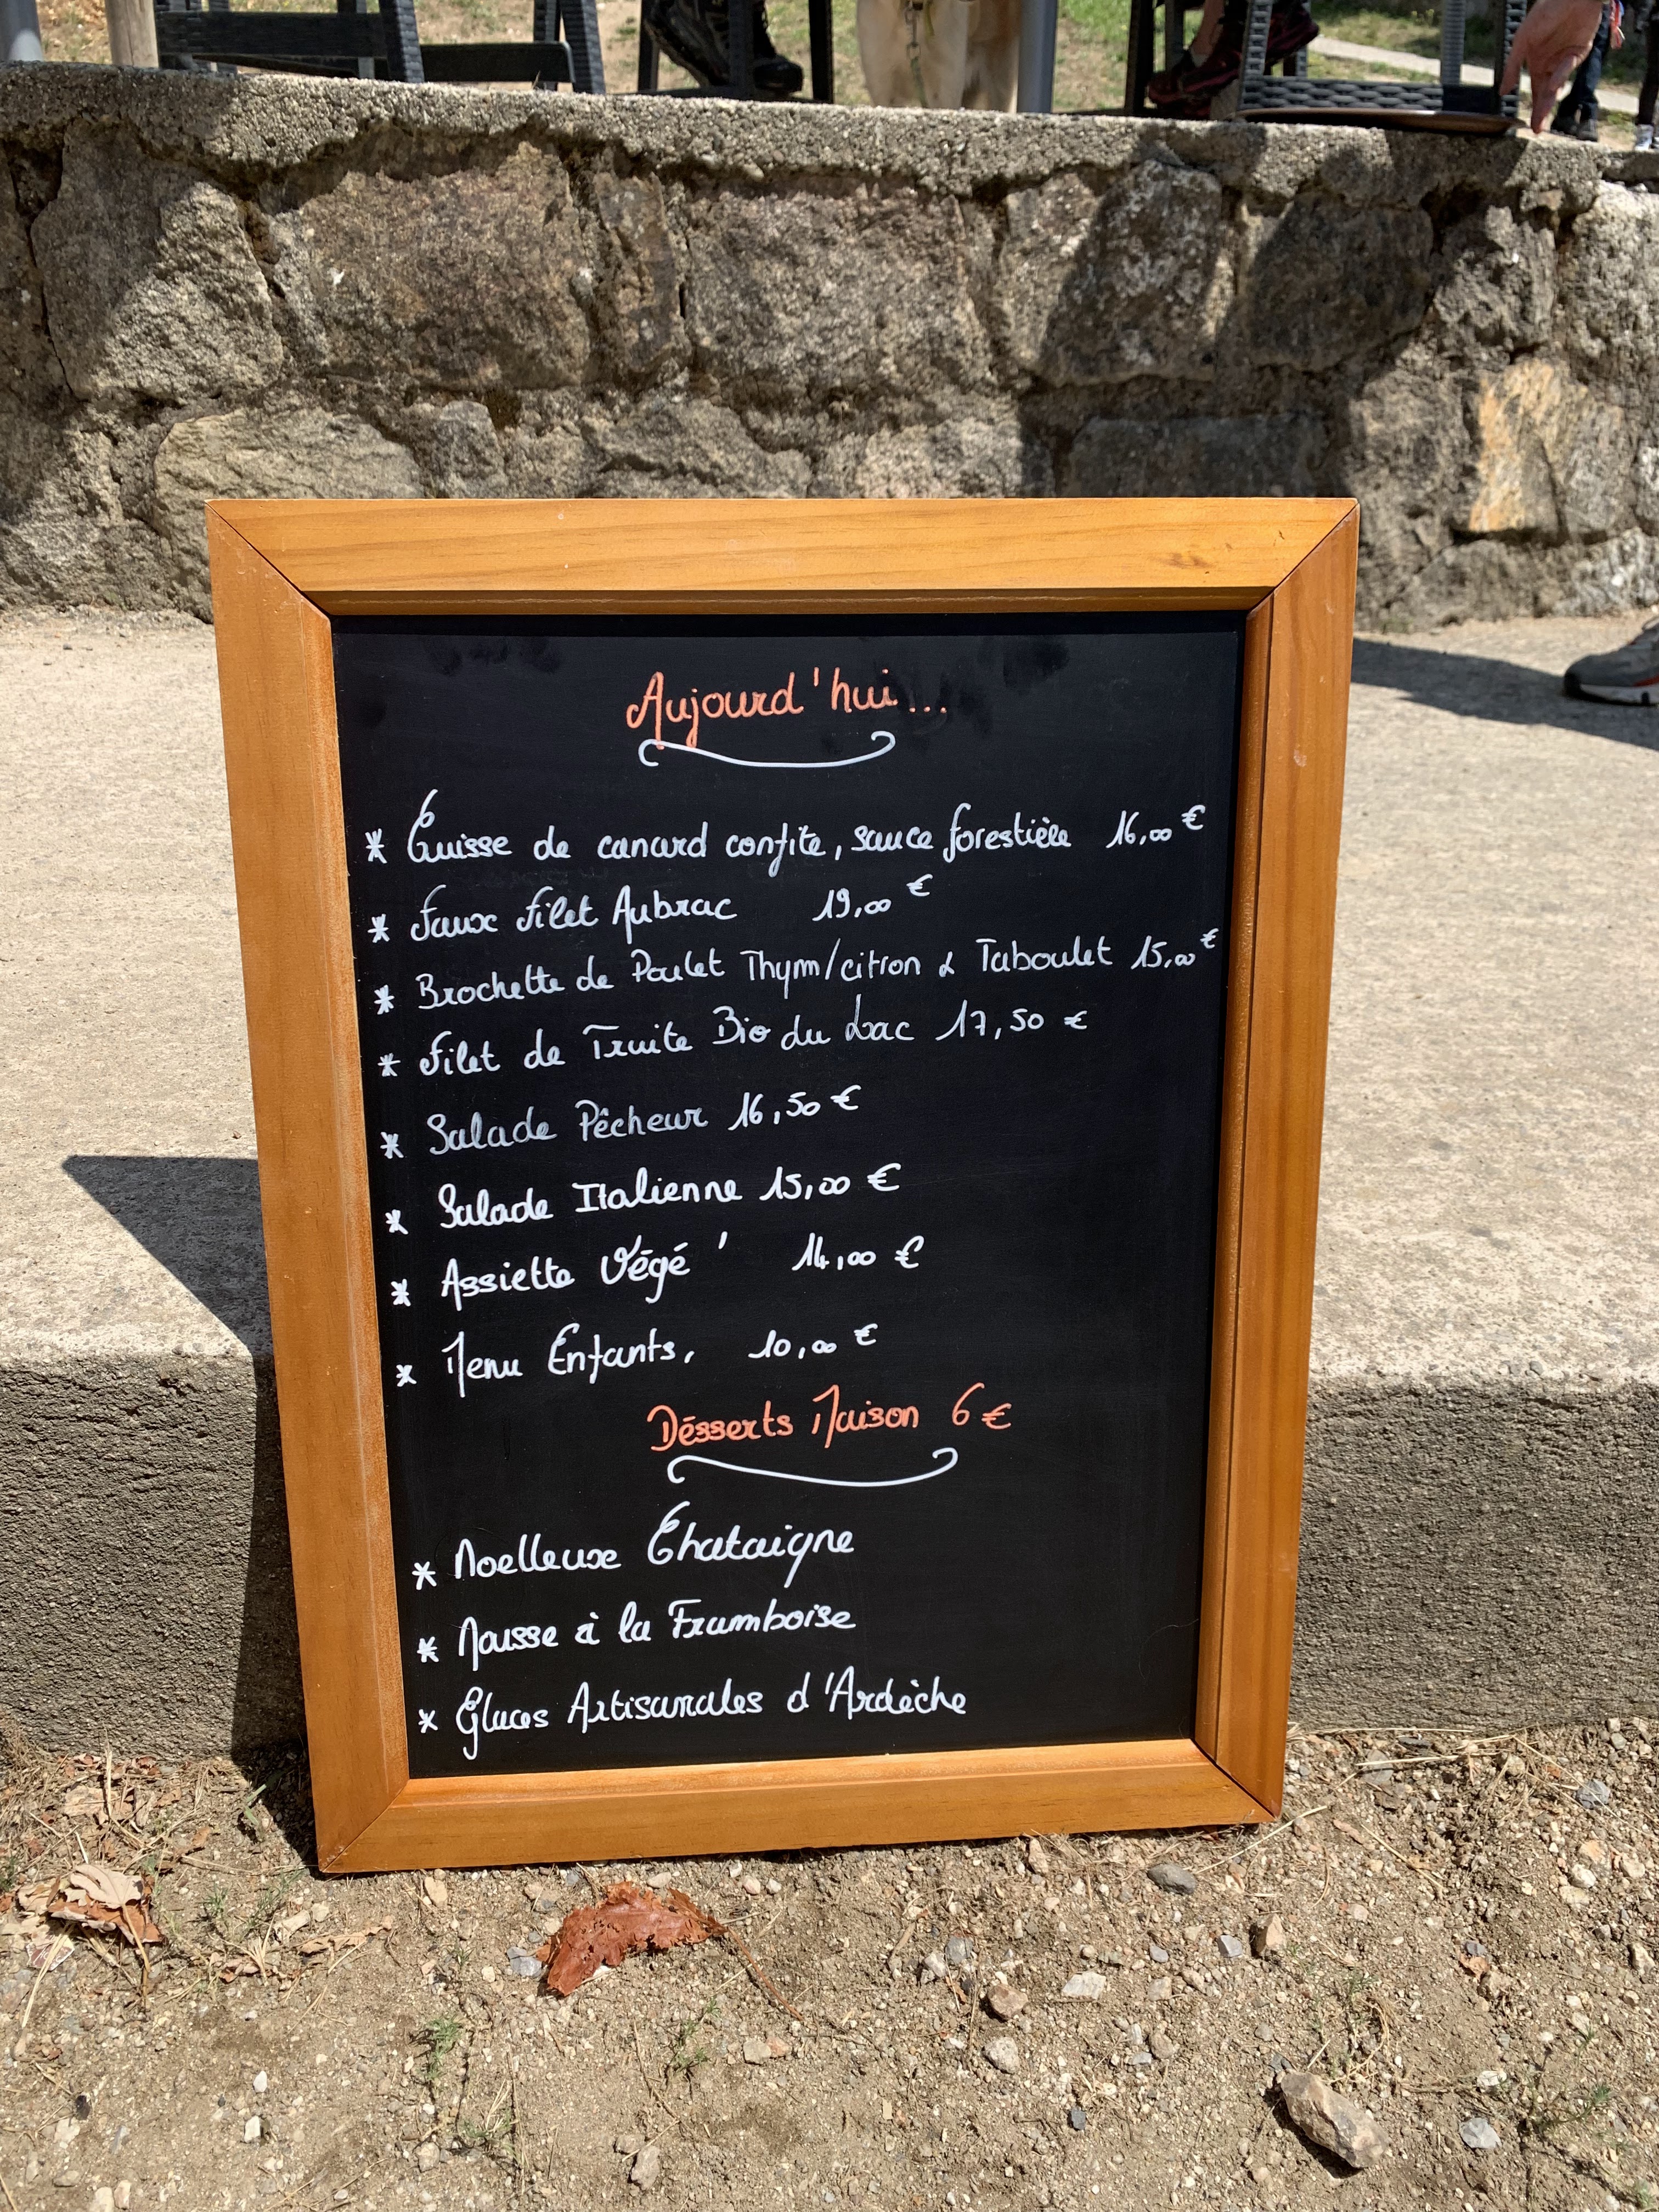 Aujourd'hui...
* Cuisse de canard confite, sauce forestière 16,00 €
* Faux filet Aubrac 19,00 €
* Brochette de Poulet Thym/citron & Taboulet 15,00 €
* Filet de Truite Bio du Lac 17,50 €
* Salade Pêcheur 16,50 €
* Salade Italienne 15,00 €
* Assiette Végé ' 14,00 €
* Menu Enfants, 10,00 €
Désserts Maison 6 €
* Moelleuse Chataigne
* Mousse à la Framboise
* Glaces Artisanales d'Ardèche